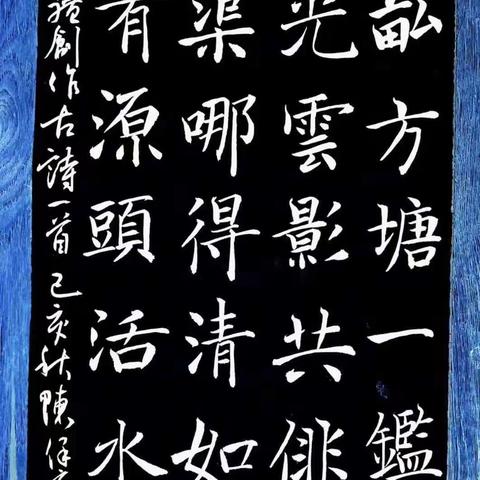 畝方塘一鑑
光雲影共俳
渠哪得清如
有源頭活水
創作古詩一首己亥秋陳